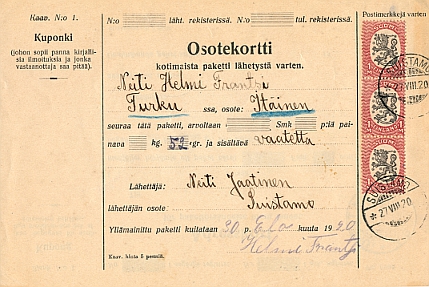 Kaav. N:o 1.
Kuponki
(johon sopii panna kirjallisia ilmoituksia ja jonka vastaanottaja saa pitää).
N:o läht. rekisterissä. N:o tul. rekisterissä.
Postimerkkejä varten.
Osotekortti
kotimaista paketti lähetystä varten.
Neiti Helmi Frantsi
Turku ssa, osote: Itäinen
seuraa tätä paketti, arvoltaan Smk p:iä painava kg. gr. ja sisältävä vaatetta
Lähettäjä: Neiti Jaatinen
lähettäjän osote: Suistamo
Yllämainittu paketti kuitataan 30 p. Elo kuuta 1920
Helmi Frantsi
Kaav. hinta 5 penniä.
SUISTAMO
27.VIII.20
SUISTAMO
27.VIII.20